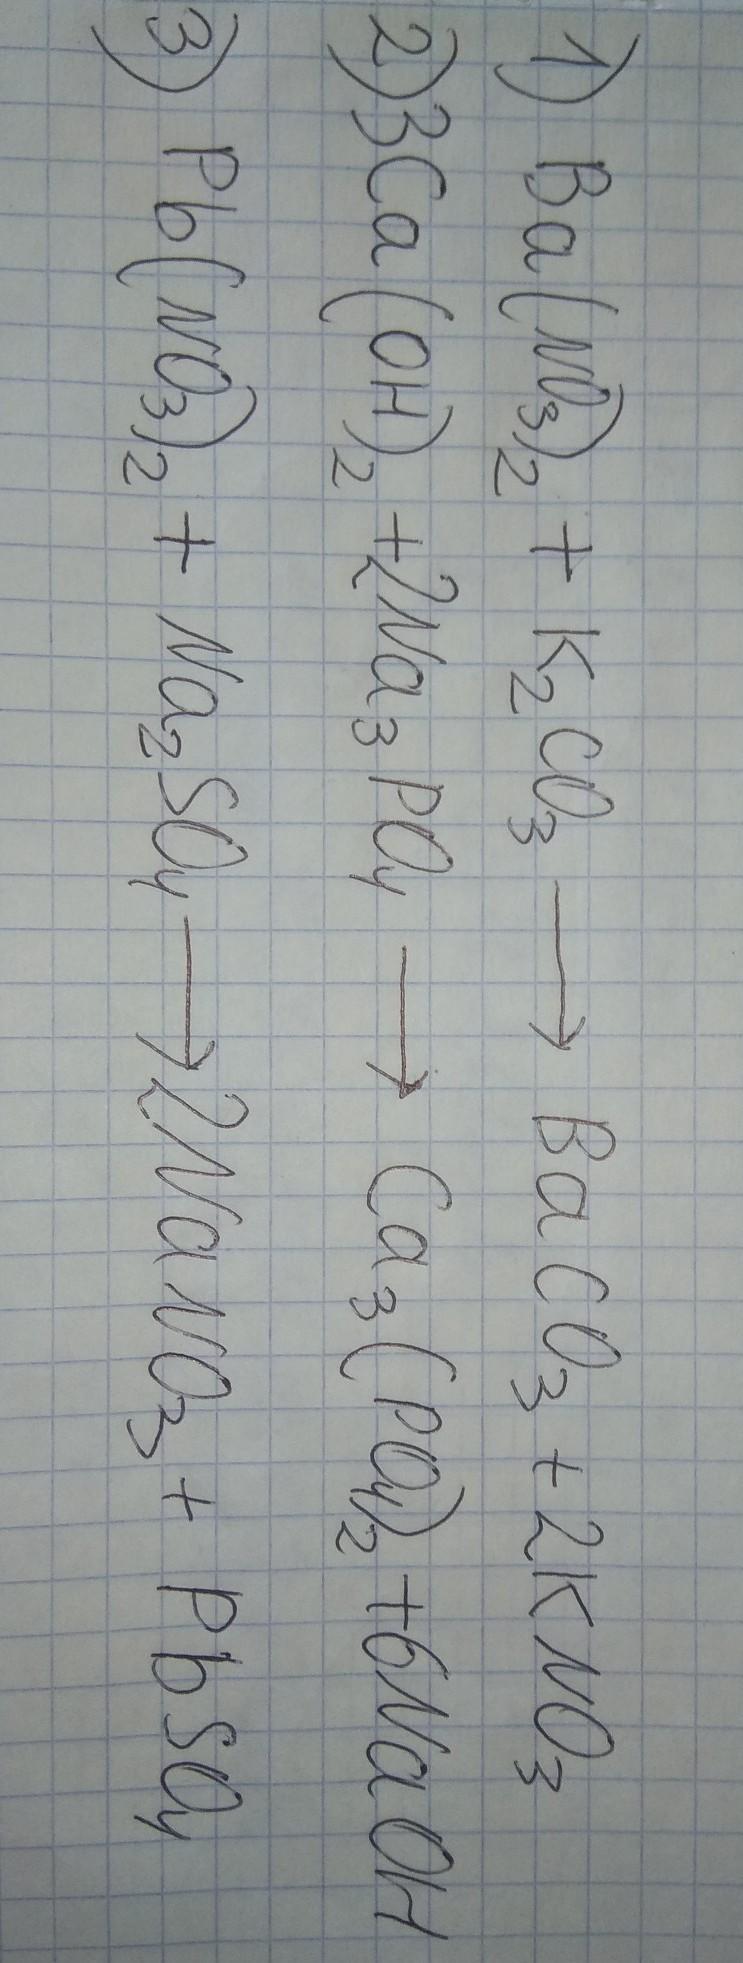 1) Ba(NO₃)₂ + K₂CO₃ → BaCO₃ + 2KNO₃
2) 3Ca(OH)₂ + 2Na₃PO₄ → Ca₃(PO₄)₂ + 6NaOH
3) Pb(NO₃)₂ + Na₂SO₄ → 2NaNO₃ + PbSO₄